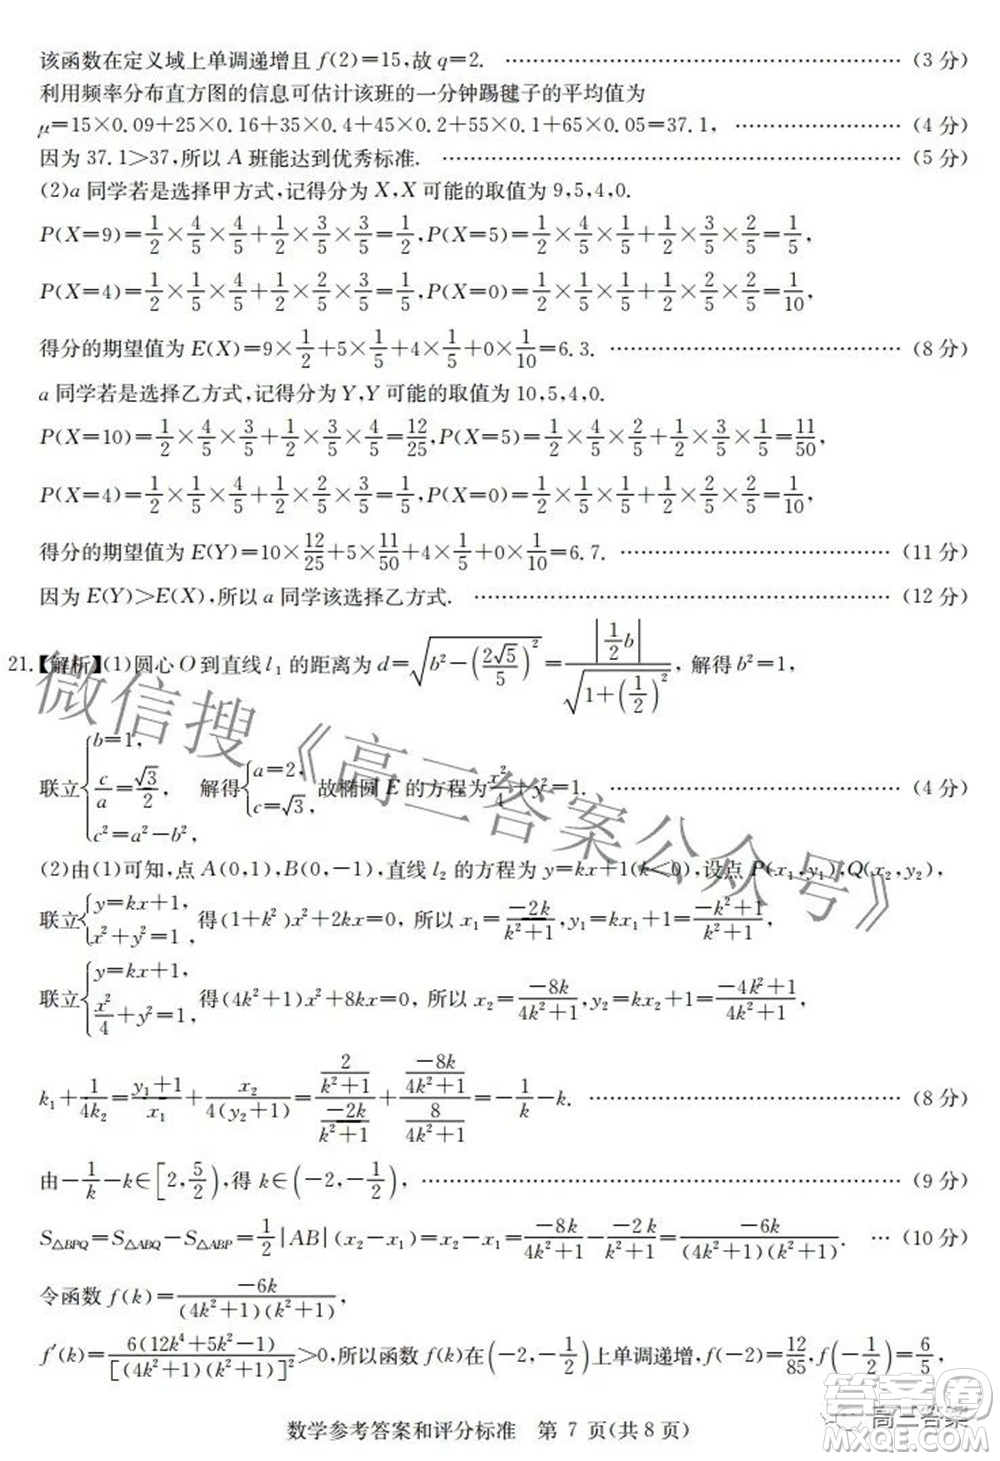 该函数在定义域上单调递增且 f(2)=15,故 q=2. ……………………………………………… (3 分)
利用频率分布直方图的信息可估计该班的一分钟踢毽子的平均值为
μ=15×0.09+25×0.16+35×0.4+45×0.2+55×0.1+65×0.05=37.1, ………………… (4 分)
因为 37.1>37,所以 A 班能达到优秀标准. …………………………………………………… (5 分)
(2)a 同学若是选择甲方式,记得分为 X,X 可能的取值为 9,5,4,0.
P(X=9)=1/2×4/5×4/5+1/2×3/5×3/5=1/2,P(X=5)=1/2×4/5×1/5+1/2×3/5×2/5=1/5,
P(X=4)=1/2×1/5×4/5+1/2×2/5×3/5=1/5,P(X=0)=1/2×1/5×1/5+1/2×2/5×2/5=1/10,
得分的期望值为 E(X)=9×1/2+5×1/5+4×1/5+0×1/10=6.3. ………………………………… (8 分)
a 同学若是选择乙方式,记得分为 Y,Y 可能的取值为 10,5,4,0.
P(Y=10)=1/2×4/5×3/5+1/2×3/5×4/5=12/25,P(Y=5)=1/2×4/5×2/5+1/2×3/5×1/5=11/50,
P(Y=4)=1/2×1/5×3/5+1/2×2/5×4/5=1/5,P(Y=0)=1/2×1/5×2/5+1/2×2/5×1/5=2/25,
得分的期望值为 E(Y)=10×12/25+5×11/50+4×1/5+0×1/10=6.7. ……………………………… (11 分)
因为 E(Y)>E(X),所以 a 同学该选择乙方式. ………………………………………………… (12 分)
21.【解析】(1)圆心 O 到直线 l₁ 的距离为 d=√(b²−(2√5/5)²)=|1/2 b|/√(1+(1/2)²), 解得 b²=1,
联立{b=1, c/a=√3/2, c²=a²−b², 解得{a=2, c=√3, 故椭圆 E 的方程为x²/4+y²=1. …………………………………… (4 分)
(2)由(1)可知,点 A(0,1),B(0,−1),直线 l₂ 的方程为 y=kx+1(k<0),设点 P(x₁,y₁),Q(x₂,y₂),
联立{y=kx+1, x²+y²=1, 得(1+k²)x²+2kx=0, 所以 x₁=−2k/(k²+1),y₁=kx₁+1=(−k²+1)/(k²+1),
联立{y=kx+1, x²/4+y²=1, 得(4k²+1)x²+8kx=0, 所以 x₂=−8k/(4k²+1),y₂=kx₂+1=(−4k²+1)/(4k²+1),
k₁+1/(4k₂)=(y₁+1)/x₁+x₂/(4(y₂+1))=(2/(k²+1))/(−2k/(k²+1))+(−8k/(4k²+1))/(8/(4k²+1))=−1/k−k. …………………………………… (8 分)
由−1/k−k∈[2,5/2),得 k∈(−2,−1/2), ……………………………………………………… (9 分)
S△BPQ=S△ABQ−S△ABP=1/2|AB|(x₂−x₁)=x₂−x₁=−8k/(4k²+1)−−2k/(k²+1)=−6k/((4k²+1)(k²+1)). … (10 分)
令函数 f(k)=−6k/((4k²+1)(k²+1)),
f′(k)=6(12k⁴+5k²−1)/[(4k²+1)(k²+1)]²>0,所以函数 f(k)在(−2,−1/2)上单调递增,f(−2)=12/85,f(−1/2)=6/5,
数学参考答案和评分标准 第 7 页(共 8 页)
微信搜《高三答案公众号》
高三答案
答案圈
MXQE.COM